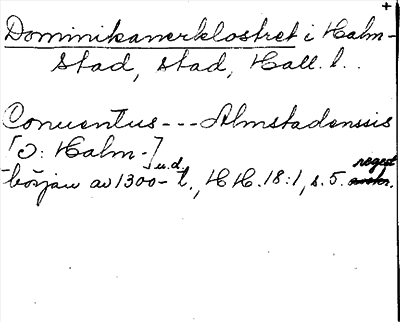 +
Dominikanerklostret i Halm-
stad, stad, Hall. l..
Conventus --- Almstadenssis
[ɔ: Halm-] u.d.
början av 1300-t., HH. 18:1, s. 5. regest